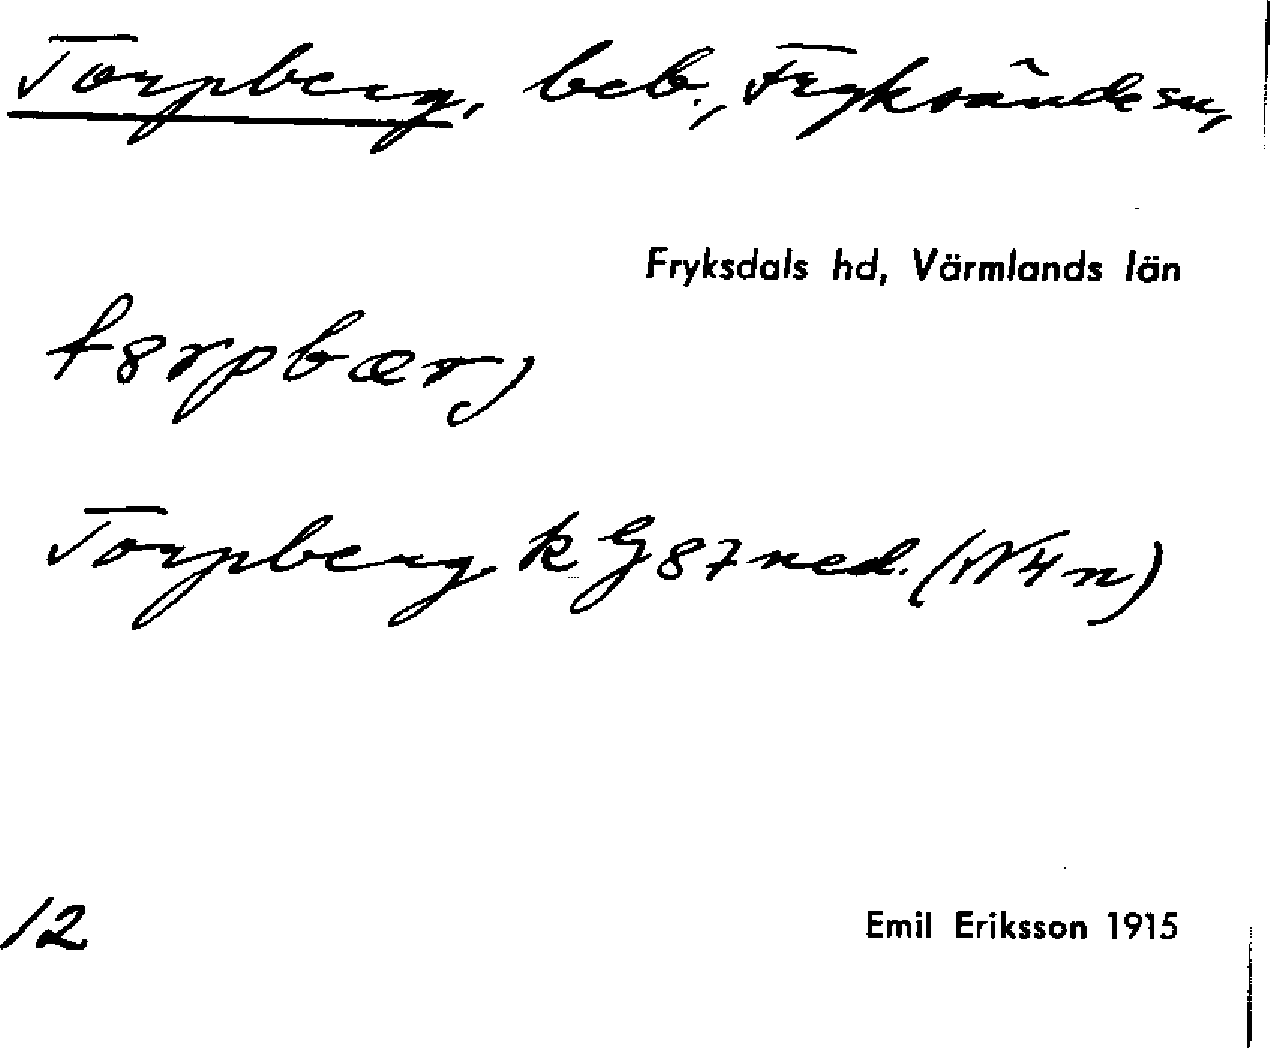 Torpberg, beb., Fryksände sn,
Fryksdals hd, Värmlands län
Torpberg k G 87 ned. (N 4 n)
12
Emil Eriksson 1915